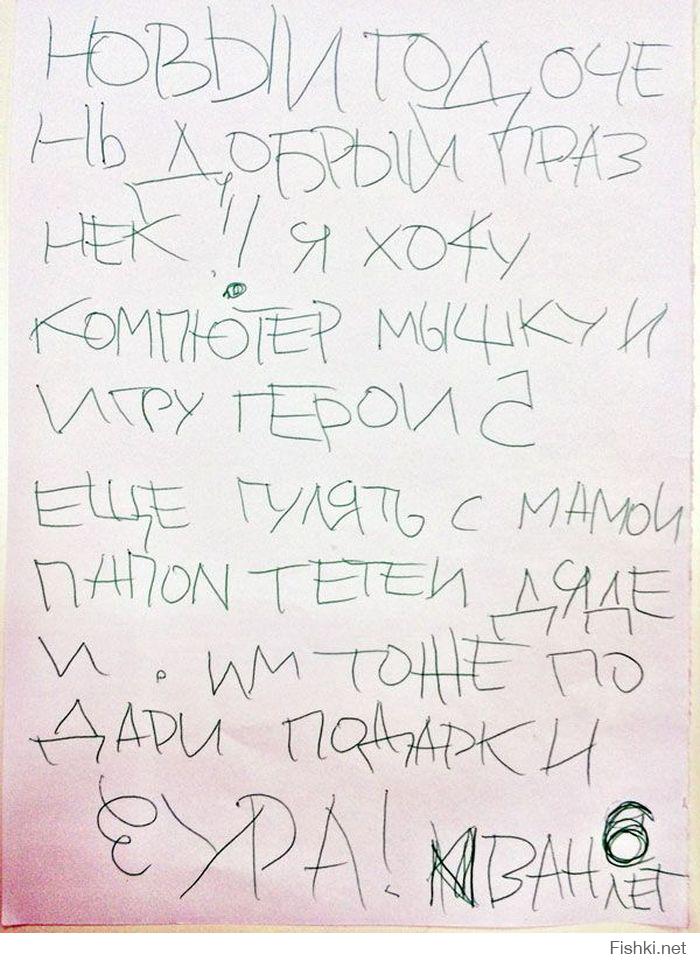 НОВЫЙ ГОД ОЧЕ
НЬ ДОБРЫЙ ПРАЗ
НЕК !! Я ХОЧУ
КОМПЮТЕР МЫШКУ И
ИГРУ ГЕРОИ 5
ЕЩЕ ГУЛЯТЬ С МАМОИ
ПАПОИ ТЕТЕИ ДЯДЕ
И . ИМ ТОЖЕ ПО
ДАРИ ПОДАРКИ
УРА! ИВАН 6
ЛЕТ
Fishki.net